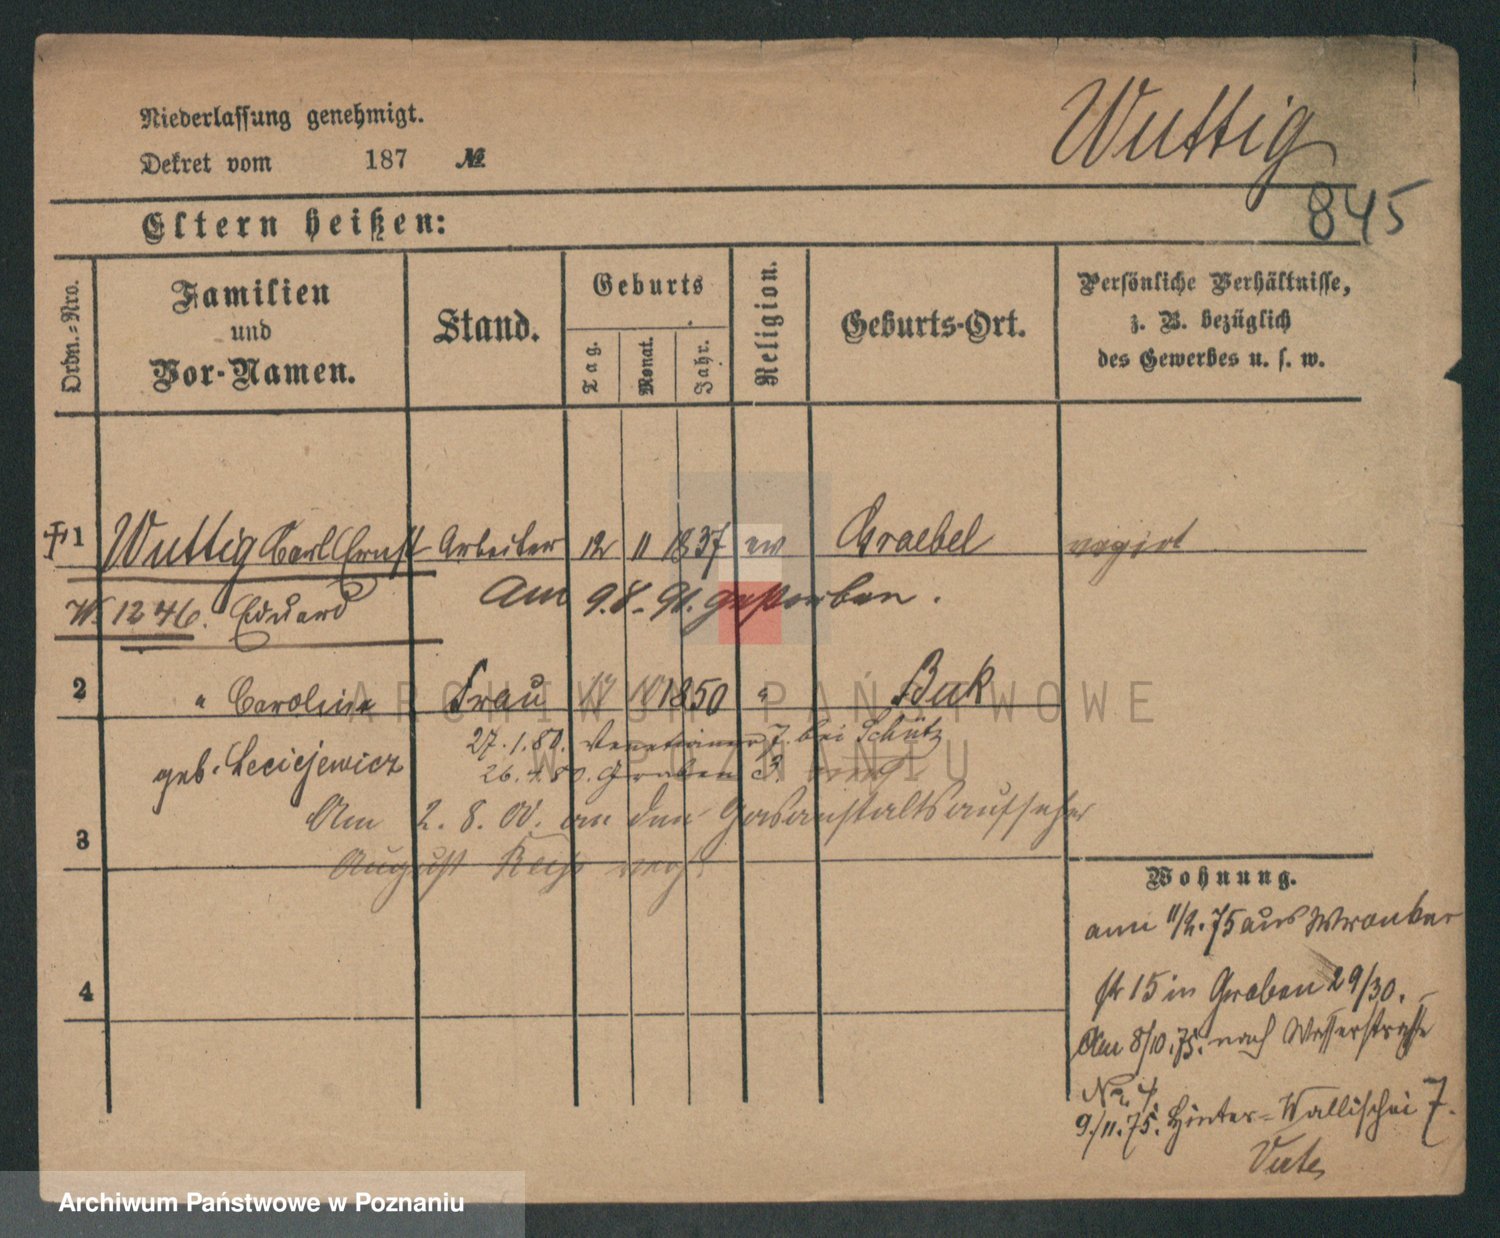 Niederlassung genehmigt.
Dekret vom 187 №
Wuttig
845
Eltern heißen:
Ordn.-Nro.
Familien
und
Vor-Namen.
Stand.
Geburts
Tag.
Monat.
Jahr.
Religion.
Geburts-Ort.
Persönliche Verhältnisse,
z. B. bezüglich
des Gewerbes u. s. w.
1 Wuttig Carl Ernst Arbeiter 12 11 1837 ev Graebel
W. 1246. Eduard am 9.8. 91. gestorben.
2 " Caroline Frau 1850 " Buk
geb. Lecicjewicz
27.1.80. Venetianer 7. bei Schütz
26. 4. 80. Graben 3.
Am 2. 8. 00. an den Gasanstaltsaufseher
3
August verh.
Wohnung.
4
am 11/2. 75 aus Wronker
str 15 in Graben 29/30.
Am 8/10. 75. nach Wasserstrasse
No 4.
9./11. 75. Hinter-Wallischei 7.
ARCHIWUM PAŃSTWOWE
W POZNANIU
Archiwum Państwowe w Poznaniu